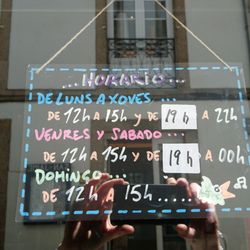 ...HORARIO...
DE LUNS A XOVES...
DE 12h A 15h Y DE 19h A 22h
VENRES Y SABADO...
DE 12h A 15h Y DE 19h A 00h
DOMINGO...
DE 12h A 15h.....